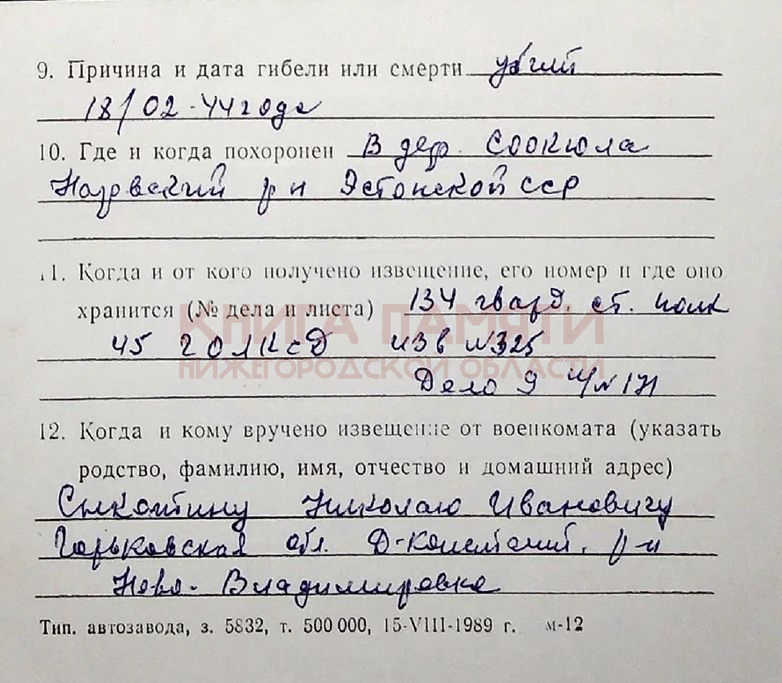 9. Причина и дата гибели или смерти убит
18/02-44 года
10. Где и когда похоронен В дер. Соокюла
Нарвский р-н Эстонской ССР
11. Когда и от кого получено извещение, его номер и где оно
хранится (№ дела и листа) 134 гвард. ст. полк
КНИГА ПАМЯТИ
45 ГОЛКСД изв №325
НИЖЕГОРОДСКОЙ ОБЛАСТИ
Дело 9 №171
12. Когда и кому вручено извещение от военкомата (указать
родство, фамилию, имя, отчество и домашний адрес)
Николаю Ивановичу
Горьковская обл. Д-Константин. р-н
Ново-Владимировка
Тип. автозавода, з. 5832, т. 500 000, 15-VIII-1989 г. м-12